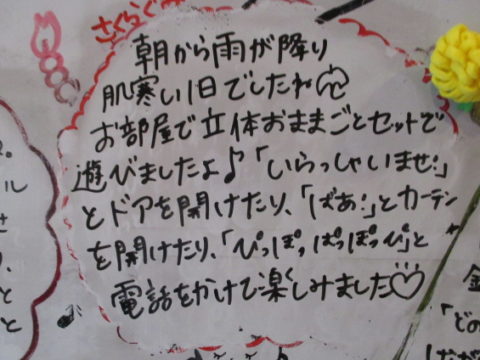 さくらぐ
朝から雨が降り
肌寒い1日でしたね
お部屋で立体おままごとセットで
遊びましたよ♪「いらっしゃいませ!」
とドアを開けたり、「ばあ!」とカーテン
を開けたり、「ぴっぽっぱっぽっぴ」と
電話をかけて楽しみました♡